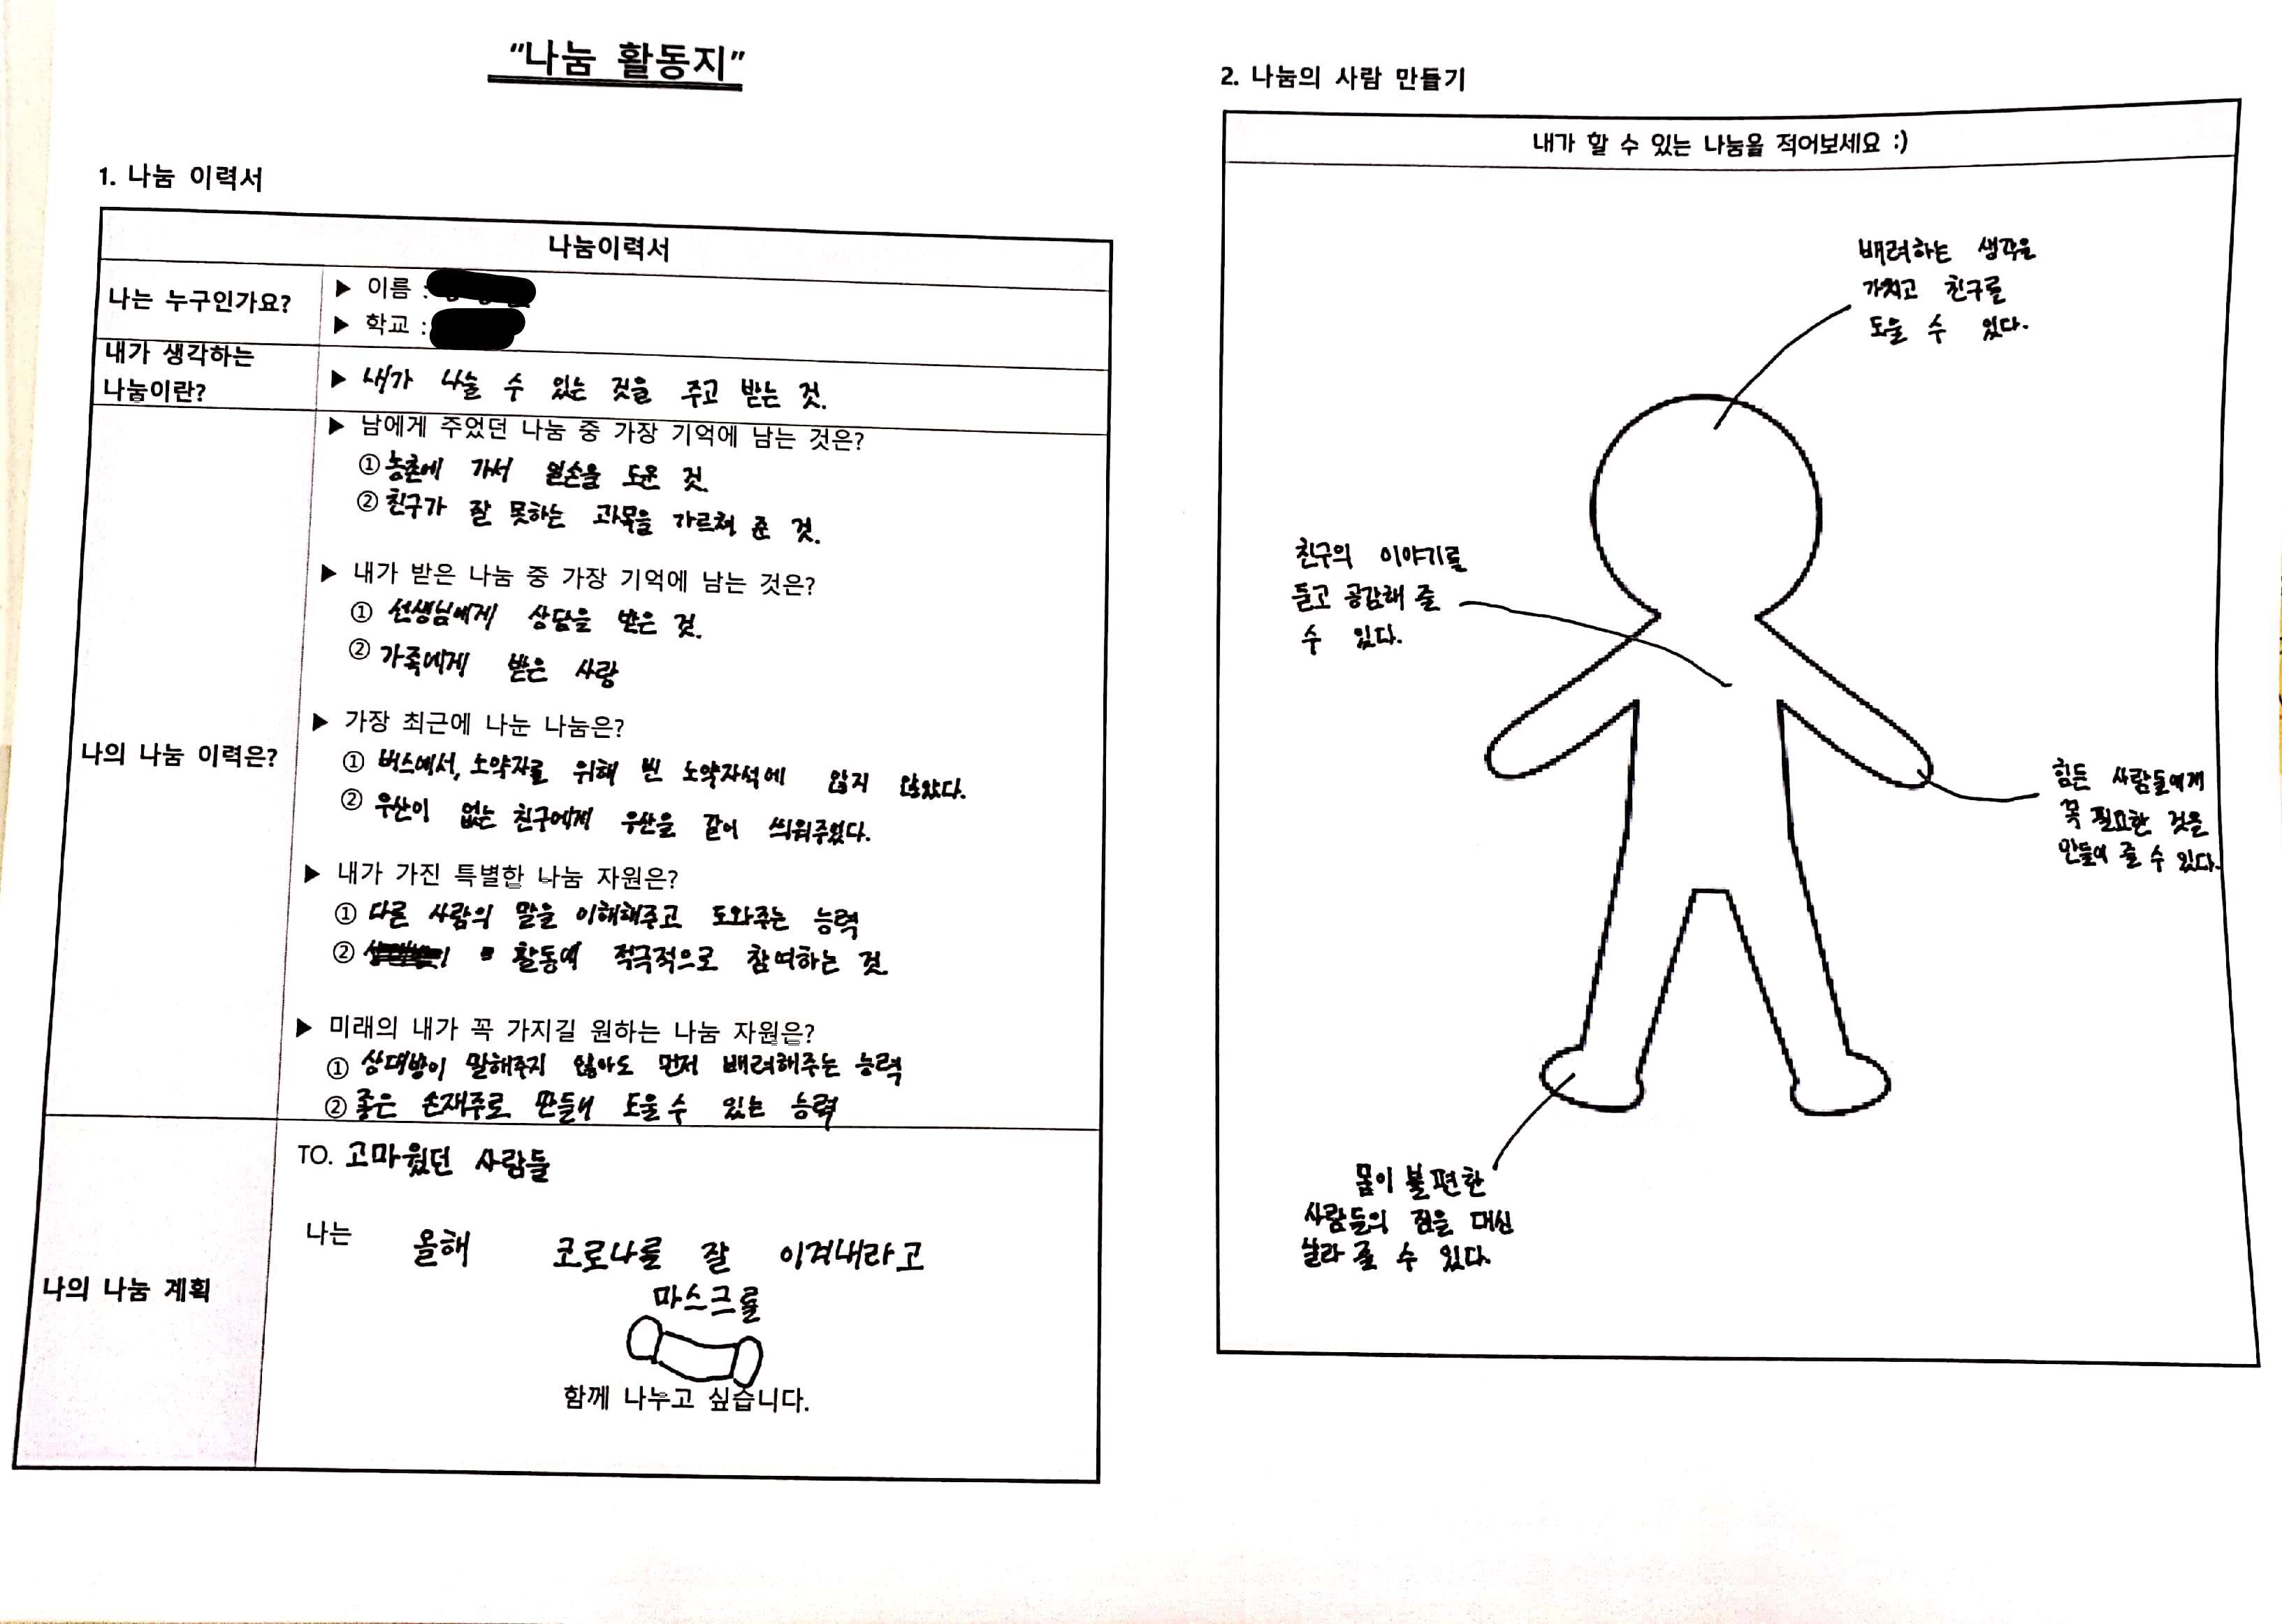 "나눔 활동지"
1. 나눔 이력서
나눔이력서
나는 누구인가요?
▶ 이름 :
▶ 학교 :
내가 생각하는
나눔이란?
▶ 내가 나눌 수 있는 것을 주고 받는 것.
나의 나눔 이력은?
▶ 남에게 주었던 나눔 중 가장 기억에 남는 것은?
① 농촌에 가서 일손을 도운 것.
② 친구가 잘 못하는 과목을 가르쳐 준 것.
▶ 내가 받은 나눔 중 가장 기억에 남는 것은?
① 선생님에게 상담을 받은 것.
② 가족에게 받은 사랑
▶ 가장 최근에 나눈 나눔은?
① 버스에서, 노약자를 위해 빈 노약자석에 앉지 않았다.
② 우산이 없는 친구에게 우산을 같이 씌워주었다.
▶ 내가 가진 특별한 나눔 자원은?
① 다른 사람의 말을 이해해주고 도와주는 능력
② 활동에 적극적으로 참여하는 것.
▶ 미래의 내가 꼭 가지길 원하는 나눔 자원은?
① 상대방이 말해주지 않아도 먼저 배려해주는 능력
② 좋은 손재주로 만들어 도울 수 있는 능력
나의 나눔 계획
TO. 고마웠던 사람들
나는 올해 코로나를 잘 이겨내라고
마스크를
함께 나누고 싶습니다.
2. 나눔의 사람 만들기
내가 할 수 있는 나눔을 적어보세요 :)
배려하는 생각을
가지고 친구를
도울 수 있다.
친구의 이야기를
듣고 공감해 줄
수 있다.
힘든 사람들에게
꼭 필요한 것을
만들어 줄 수 있다.
몸이 불편한
사람들의 짐을 대신
날라 줄 수 있다.